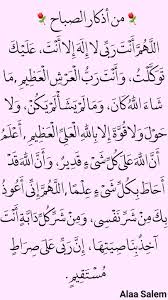 🌹من أذكار الصباح🌹
اللَّهُمَّ أَنْتَ رَبِّي لَا إِلَهَ إِلَّا أَنْتَ، عَلَيْكَ
تَوَكَّلْتُ، وَأَنْتَ رَبُّ الْعَرْشِ الْعَظِيمِ، مَا
شَاءَ اللَّهُ كَانَ، وَمَا لَمْ يَشَأْ لَمْ يَكُنْ، وَلَا
حَوْلَ وَلَا قُوَّةَ إِلَّا بِاللَّهِ الْعَلِيِّ الْعَظِيمِ، أَعْلَمُ
أَنَّ اللَّهَ عَلَى كُلِّ شَيْءٍ قَدِيرٌ، وَأَنَّ اللَّهَ قَدْ
أَحَاطَ بِكُلِّ شَيْءٍ عِلْمًا، اللَّهُمَّ إِنِّي أَعُوذُ
بِكَ مِنْ شَرِّ نَفْسِي، وَمِنْ شَرِّ كُلِّ دَابَّةٍ أَنْتَ
آخِذٌ بِنَاصِيَتِهَا، إِنَّ رَبِّي عَلَى صِرَاطٍ
مُسْتَقِيمٍ.
Alaa Salem